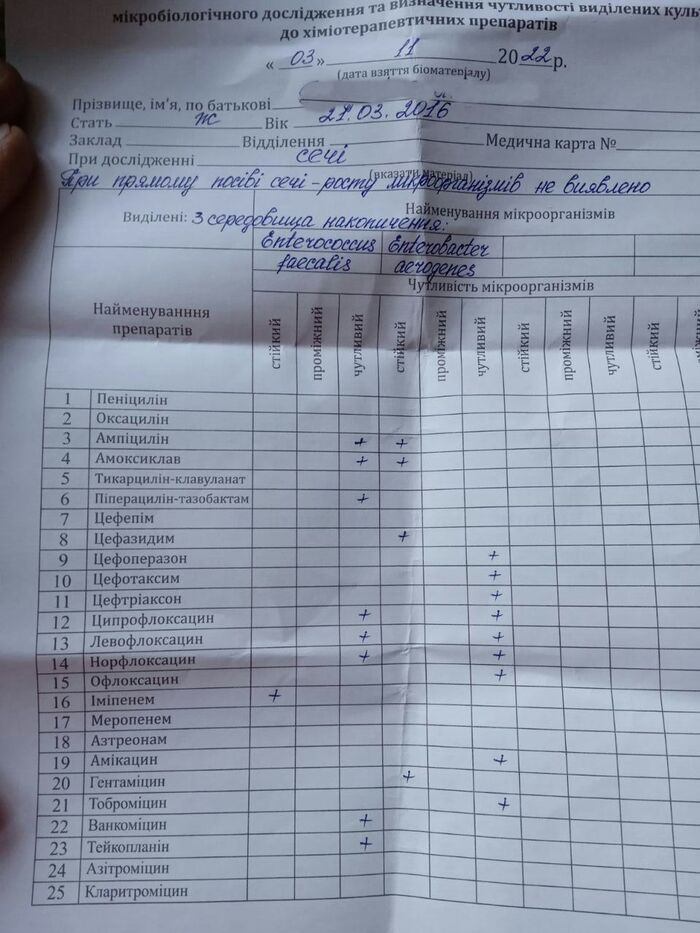 мікробіологічного дослідження та визначення чутливості виділених культ
до хіміотерапевтичних препаратів
« 03 » 11 2022р.
(дата взяття біоматеріалу)
Прізвище, ім'я, по батькові
Стать ж Вік 21.03.2016
Заклад Відділення Медична карта №
При дослідженні сечі
(вказати матеріал)
При прямому посіві сечі - росту мікроорганізмів не виявлено
Виділені: З середовища накопичення: Найменування мікроорганізмів
Enterococcus Enterobacter
faecalis aerogenes
Чутливість мікроорганізмів
Найменуванння препаратів стійкий проміжний чутливий стійкий проміжний чутливий стійкий проміжний чутливий стійкий
1 Пеніцилін
2 Оксацилін
3 Ампіцилін + +
4 Амоксиклав + +
5 Тикарцилін-клавуланат
6 Піперацилін-тазобактам +
7 Цефепім
8 Цефазидим +
9 Цефоперазон +
10 Цефотаксим +
11 Цефтріаксон +
12 Ципрофлоксацин + +
13 Левофлоксацин + +
14 Норфлоксацин + +
15 Офлоксацин +
16 Іміпенем +
17 Меропенем
18 Азтреонам
19 Амікацин +
20 Гентаміцин +
21 Тоброміцин +
22 Ванкоміцин +
23 Тейкопланін +
24 Азітроміцин
25 Кларитроміцин